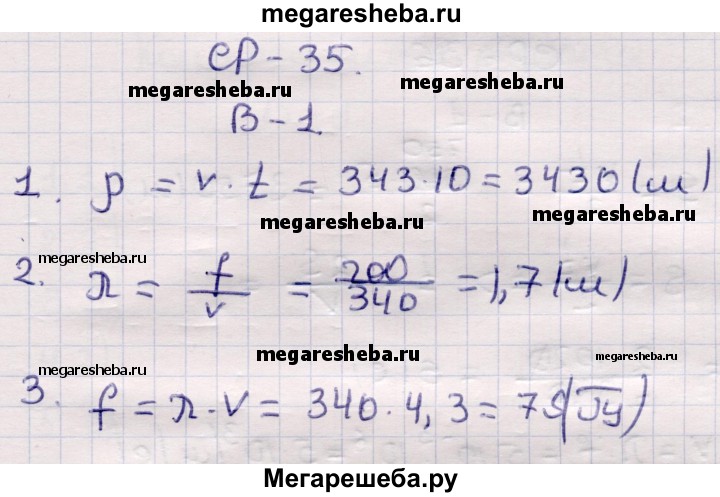 megaresheba.ru
СР - 35.
megaresheba.ru megaresheba.ru
В - 1
1. p = v · t = 343 · 10 = 3430 (м)
megaresheba.ru megaresheba.ru
2. λ = f/v = 200/340 = 1,7 (м)
megaresheba.ru
megaresheba.ru megaresheba.ru
3. f = λ · V = 340 · 4,3 = 79 (Гц)
megaresheba.ru
Мегарешеба.ру